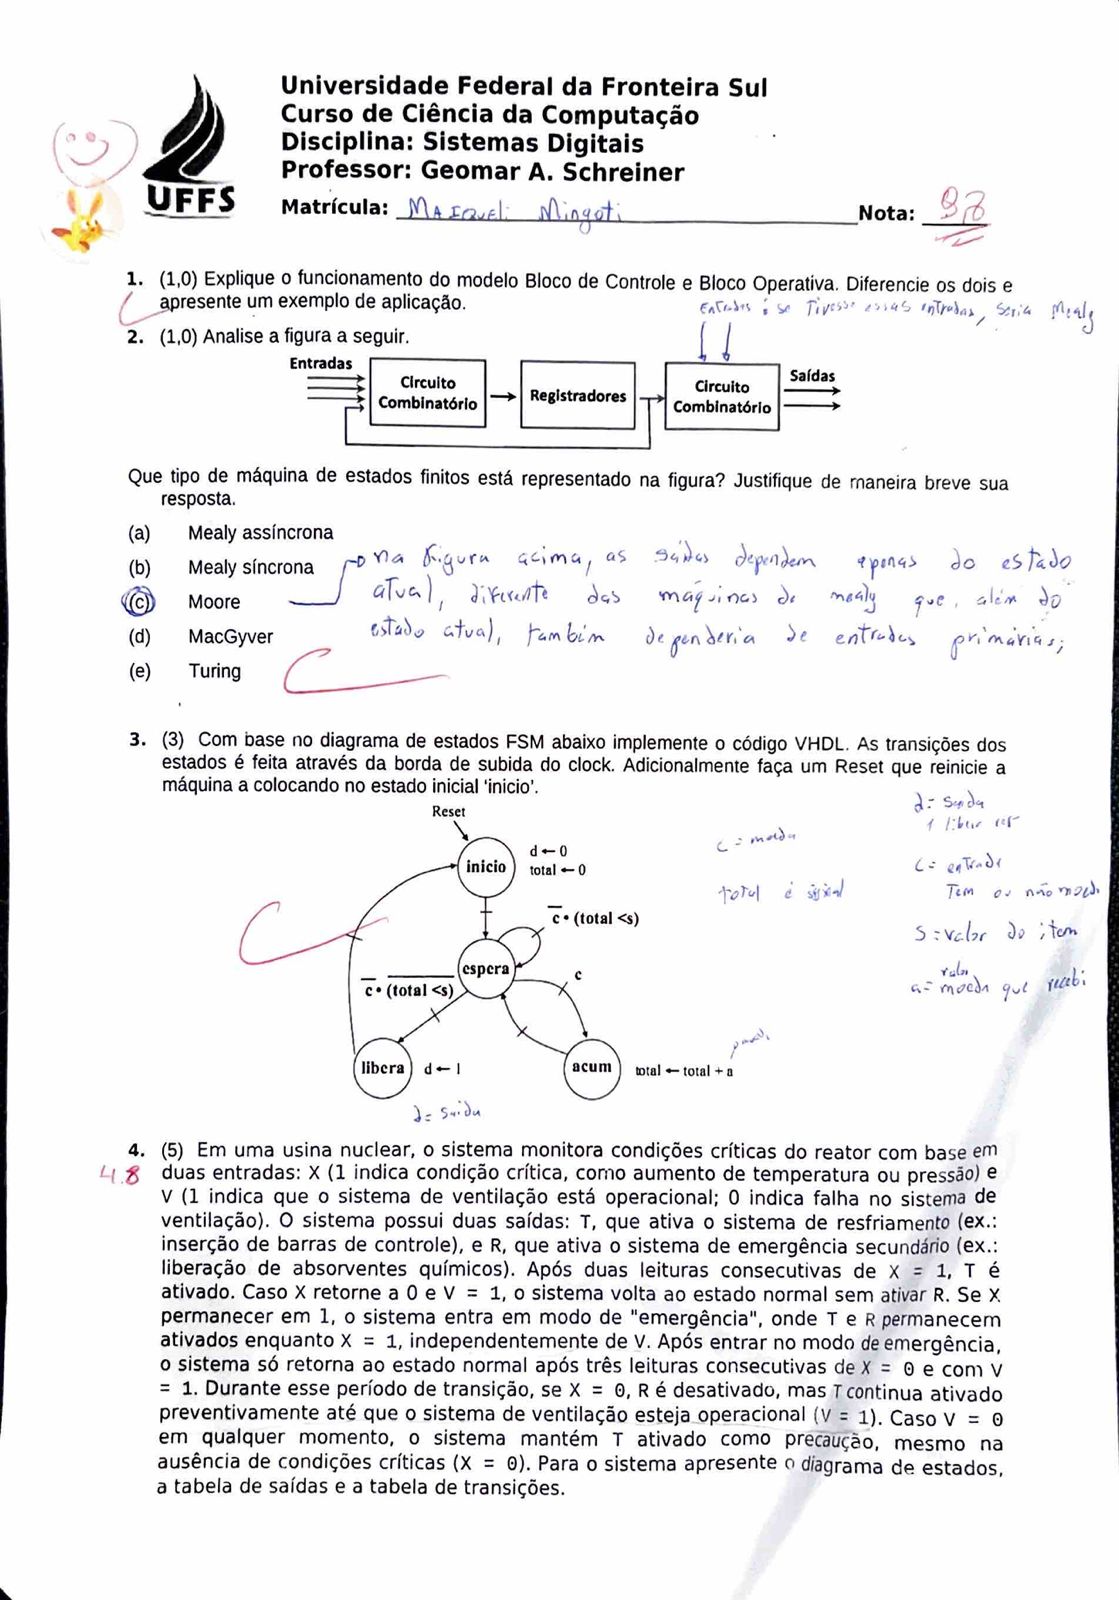 Universidade Federal da Fronteira Sul
Curso de Ciência da Computação
Disciplina: Sistemas Digitais
Professor: Geomar A. Schreiner
UFFS
Matrícula: Maiqueli Mingoti Nota: 9,8
1. (1,0) Explique o funcionamento do modelo Bloco de Controle e Bloco Operativa. Diferencie os dois e
apresente um exemplo de aplicação.
Entradas : se Tivesse essas entradas, seria Mealy
2. (1,0) Analise a figura a seguir.
Entradas
Circuito
Combinatório
Registradores
Circuito
Combinatório
Saídas
Que tipo de máquina de estados finitos está representado na figura? Justifique de maneira breve sua
resposta.
(a) Mealy assíncrona
(b) Mealy síncrona
(c) Moore
(d) MacGyver
(e) Turing
na figura acima, as saídas dependem apenas do estado
atual, diferente das máquinas de mealy que, além do
estado atual, também dependeria de entradas primárias;
3. (3) Com base no diagrama de estados FSM abaixo implemente o código VHDL. As transições dos
estados é feita através da borda de subida do clock. Adicionalmente faça um Reset que reinicie a
máquina a colocando no estado inicial 'inicio'.
Reset
inicio
d ← 0
total ← 0
c • (total <s)
espera
c • (total <s)
c
libera
d ← 1
acum
total ← total + a
d = saída
c = moeda
total é sinal
d = saída
1 libera
c = entrada
Tem ou não moeda
S = valor do item
valor
a = moeda que recebi
4. (5) Em uma usina nuclear, o sistema monitora condições críticas do reator com base em
4.8
duas entradas: X (1 indica condição crítica, como aumento de temperatura ou pressão) e
V (1 indica que o sistema de ventilação está operacional; 0 indica falha no sistema de
ventilação). O sistema possui duas saídas: T, que ativa o sistema de resfriamento (ex.:
inserção de barras de controle), e R, que ativa o sistema de emergência secundário (ex.:
liberação de absorventes químicos). Após duas leituras consecutivas de X = 1, T é
ativado. Caso X retorne a 0 e V = 1, o sistema volta ao estado normal sem ativar R. Se X
permanecer em 1, o sistema entra em modo de "emergência", onde T e R permanecem
ativados enquanto X = 1, independentemente de V. Após entrar no modo de emergência,
o sistema só retorna ao estado normal após três leituras consecutivas de X = 0 e com V
= 1. Durante esse período de transição, se X = 0, R é desativado, mas T continua ativado
preventivamente até que o sistema de ventilação esteja operacional (V = 1). Caso V = 0
em qualquer momento, o sistema mantém T ativado como precaução, mesmo na
ausência de condições críticas (X = 0). Para o sistema apresente o diagrama de estados,
a tabela de saídas e a tabela de transições.